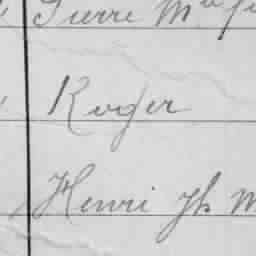 Pierre M
Roger
Henri Jh M